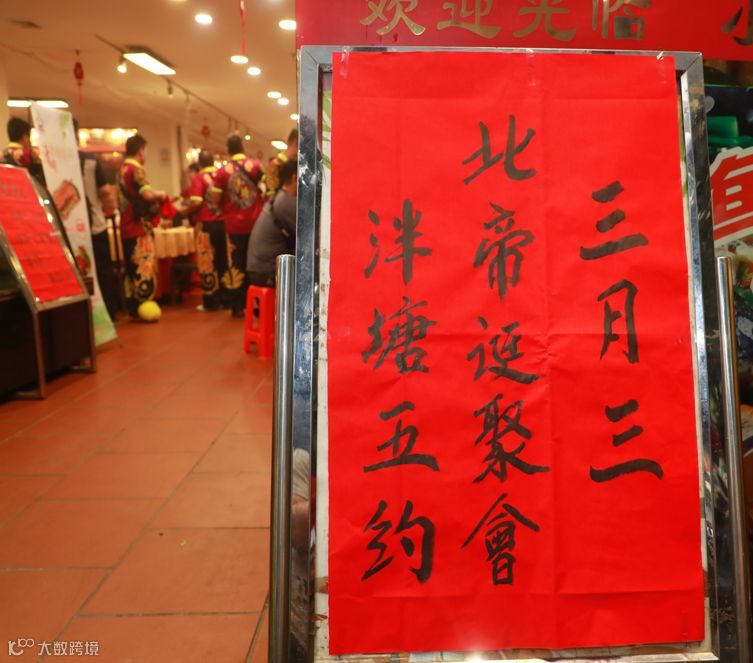 欢迎光临
三月三
北帝诞聚會
泮塘五约
鱼
大数跨境